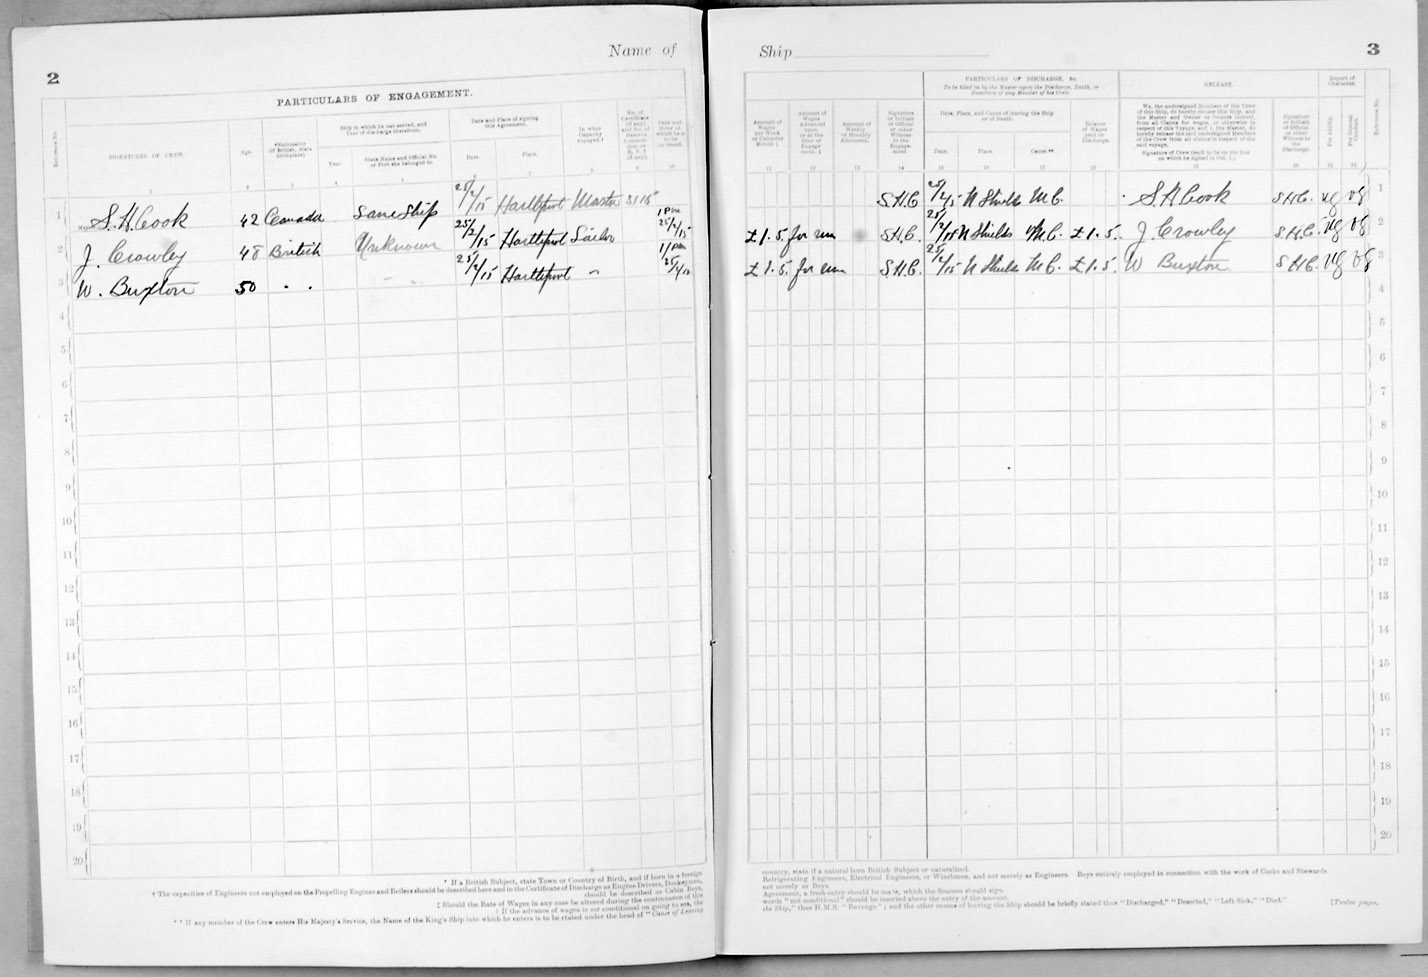 2
Name of
PARTICULARS OF ENGAGEMENT.
Reference No.
SIGNATURES OF CREW.
Age.
*Nationality
(If British, state
birthplace)
Ship in which he last served, and
Year of discharge therefrom.
Year.
State Name and Official No.
or Port she belonged to.
Date and Place of signing
this Agreement.
Date.
Place.
In what
Capacity
engaged.†
No. of
Certificate
(if any)
and No. of
Reserve
Commis-
sion or
R. V. 2
(if any).
Date and
Hour at
which he is
to be
on board.
1 2 3 4 5 6 7 8 9 10
1 S. H. Cook 42 Canada Same Ship 25/2/15 Hartlepool Master
2 J. Crowley 48 British Unknown 25/2/15 Hartlepool Sailor 1 pm 25/2/15
3 W. Buxton 50 " " 25/2/15 Hartlepool " 1 pm
4
5
6
7
8
9
10
11
12
13
14
15
16
17
18
19
20
* If a British Subject, state Town or Country of Birth, and if born in a foreign
† The capacities of Engineers not employed on the Propelling Engines and Boilers should be described here and in the Certificate of Discharge as Engine Drivers, Donkeymen,
should be described as Cabin Boys,
‡ Should the Rate of Wages in any case be altered during the continuance of this
† If the advance of wages is not conditional on going to sea, the
** If any member of the Crew enters His Majesty's Service, the Name of the King's Ship into which he enters is to be stated under the head of "Cause of Leaving
Ship
3
PARTICULARS OF DISCHARGE, &c.
To be filled in by the Master upon the Discharge, Death, or
Desertion of any Member of his Crew.
RELEASE.
Report of
Character.
Amount of
Wages
per Week
or Calendar
Month ‡
Amount of
Wages
Advanced
upon
or at the
time of
Engage
ment. ‡
Amount of
Weekly
or Monthly
Allotment.
Signature
or Initials
of Official
or other
Witness
to the
Engage-
ment
Date, Place, and Cause of leaving the Ship
or of Death.
Date.
Place.
Cause.**
Balance
of Wages
paid on
Discharge.
We, the undersigned Members of the Crew
of this Ship, do hereby release this Ship, and
the Master and Owner or Owners thereof,
from all Claims for wages, or otherwise in
respect of this Voyage, and I, the Master, do
hereby release the said undersigned Members
of the Crew from all claims in respect of the
said voyage.
Signature of Crew (each to be on the line
on which he signed in Col. 1.)
Signature
or Initials
of Official
or other
Witness to
the
Discharge.
For Ability.
For General
Conduct.
Reference No.
11 12 13 14 15 16 17 18 19 20 21 22
S.H.C. 25/2/15 N Shields M.C. S. H. Cook S.H.C. vg vg 1
£1.5. for run S.H.C. 25/2/15 N Shields M.C. £1.5. J. Crowley S.H.C. vg vg 2
£1.5. for run S.H.C. 25/2/15 N Shields M.C. £1.5 W Buxton S.H.C. vg vg 3
4
5
6
7
8
9
10
11
12
13
14
15
16
17
18
19
20
country, state if a natural born British Subject or naturalised.
Refrigerating Engineers, Electrical Engineers, or Winchmen, and not merely as Engineers. Boys entirely employed in connection with the work of Cooks and Stewards
not merely as Boys.
Agreement, a fresh entry should be made, which the Seamen should sign.
words "not conditional" should be inserted above the entry of the amount.
the Ship," thus H.M.S. "Revenge"; and the other causes of leaving the Ship should be briefly stated thus "Discharged," "Deserted," "Left Sick," "Died."
[Twelve pages.